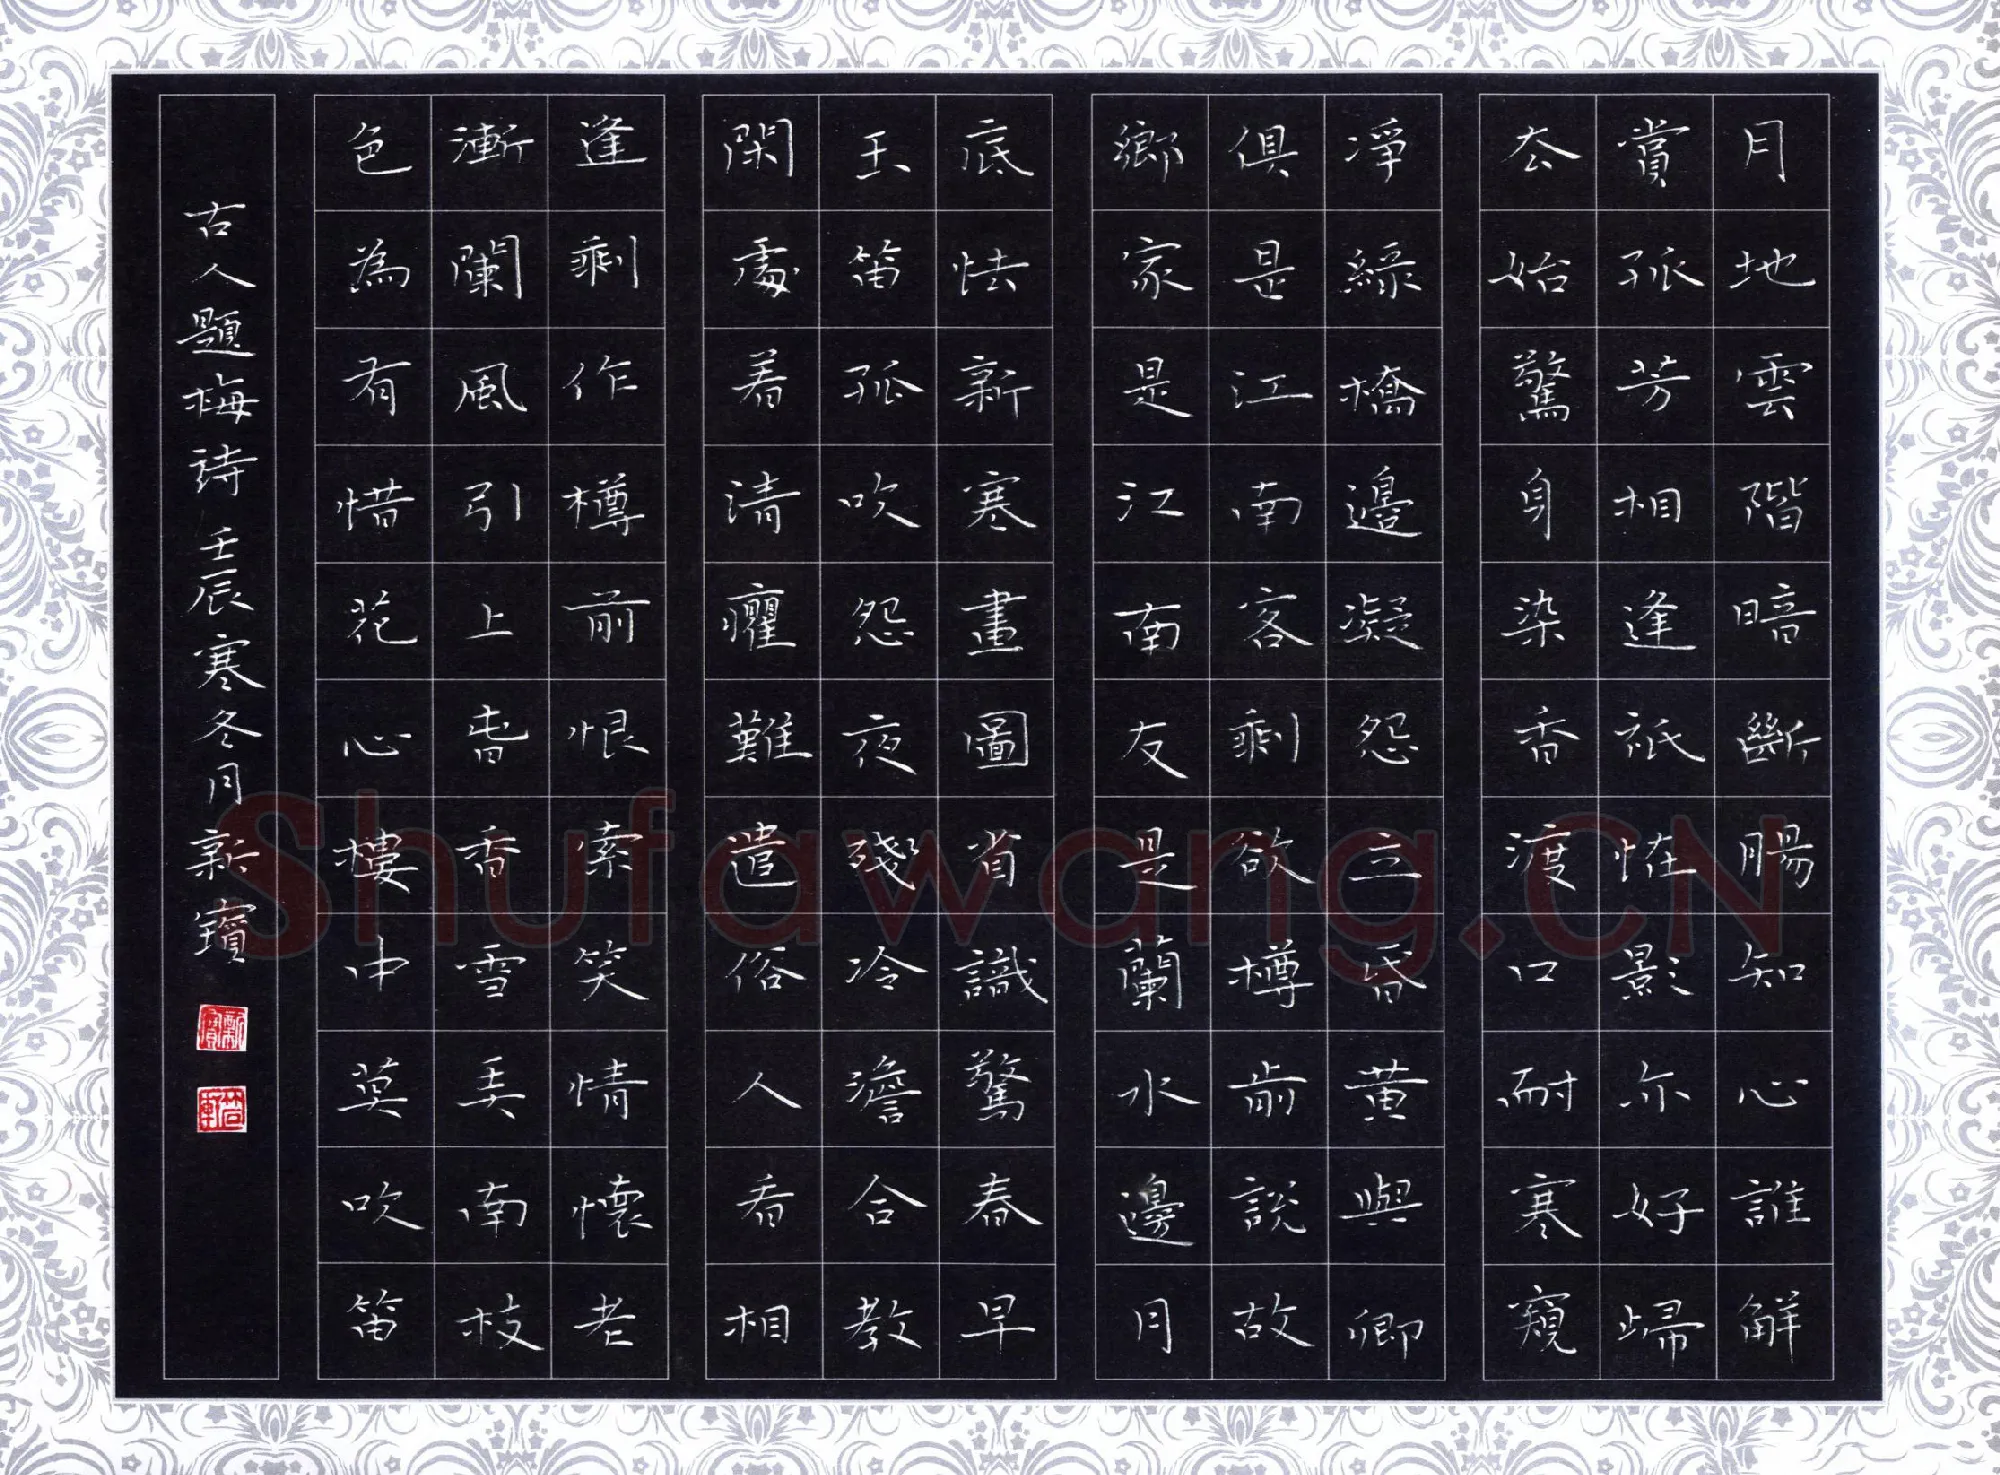 月地雲階暗斷腸知心誰解
賞孤芳相逢祇恠影亦好歸
去始驚身染香渡口耐寒窺
淨綠橋邊凝怨立昏黄與卿
俱是江南客剩欲樽前說故
鄉家是江南友是蘭水邊月
底怯新寒畫圖省識驚春早
玉笛孤吹怨夜殘冷澹合教
閑處着清癯難遣俗人看相
逢剩作樽前恨索笑情懷老
漸闌風引上旾香雪美南枝
色為有惜花心樓中莫吹笛
古人題梅詩壬辰寒冬月新寶
Shufawang.CN